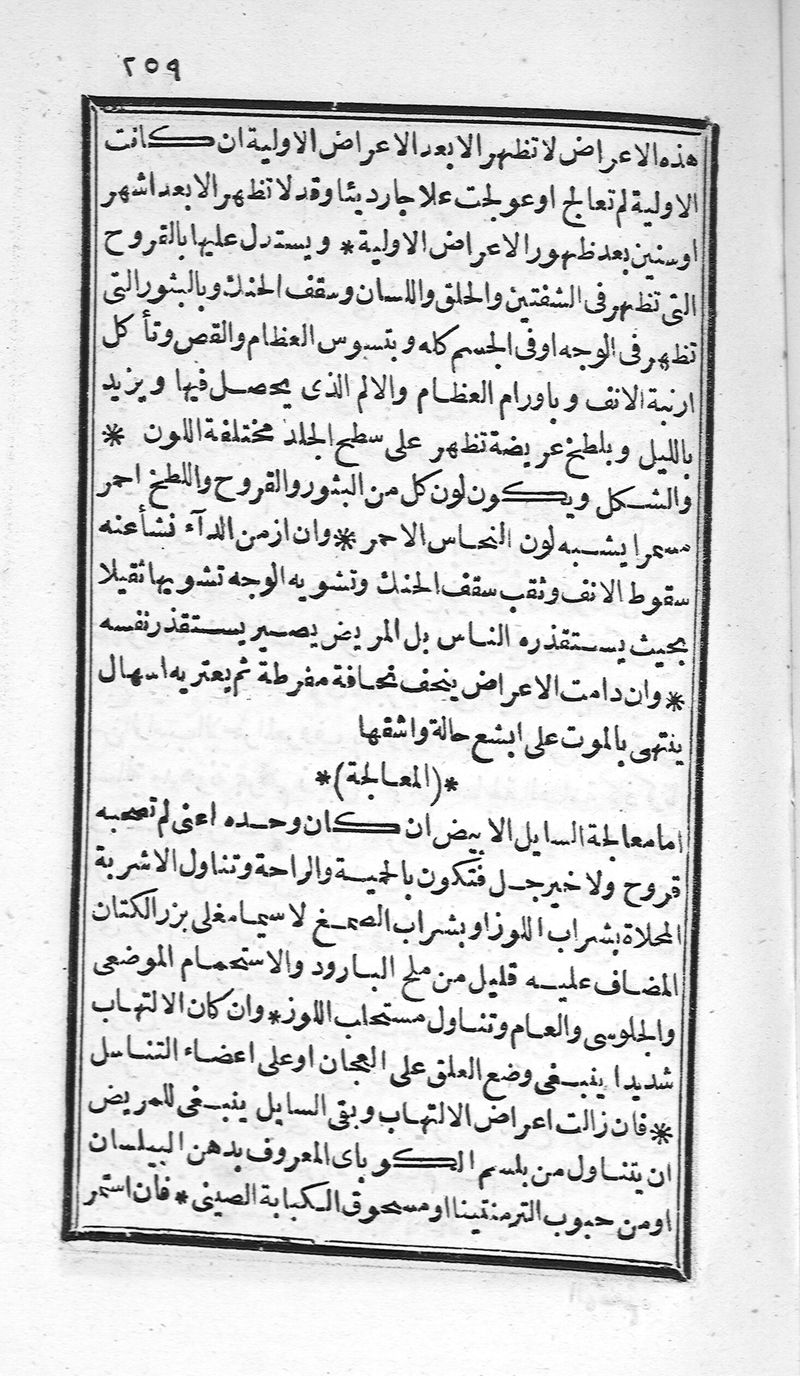 ٢٥٩
هذه الاعراض لا تظهر الا بعد الاعراض الاولية ان كانت
الاولية لم تعالج او عولجت علاجا رديئا وقد لا تظهر الا بعد اشهر
اوسنين بعد ظهور الاعراض الاولية * ويستدل عليها بالقروح
التى تظهر فى الشفتين والحلق واللسان وسقف الحنك وبالبثور التى
تظهر فى الوجه اوفى الجسم كله وبتسوس العظام والقص وتأكل
ارنبة الانف وباورام العظام والالم الذى يحصل فيها ويزيد
بالليل وبلطخ عريضة تظهر على سطح الجلد مختلفة اللون *
والشكل ويكون لون كل من البثور والقروح واللطخ احمر
مسمرا يشبه لون النحاس الاحمر * وان ازمن الدآء نشأ عنه
سقوط الانف وثقب سقف الحنك وتشويه الوجه تشويها ثقيلا
بحيث يستقذره الناس بل المريض يصير يستقذر نفسه
* وان دامت الاعراض ينحف نحافة مفرطة ثم يعتريه اسهال
ينتهى بالموت على ابشع حالة واشقها
* (المعالجة) *
اما معالجة السايل الابيض ان كان وحده اعنى لم تصحبه
قروح ولا خيرجل فتكون بالحمية والراحة وتناول الاشربة
المحلاة بشراب اللوز او بشراب الصمغ لاسيما مغلى بزر الكتان
المضاف عليه قليل من ملح البارود والاستحمام الموضعى
والجلوسى والعام وتناول مستحلب اللوز * وان كان الالتهاب
شديدا ينبغى وضع العلق على العجان اوعلى اعضاء التناسل
* فان زالت اعراض الالتهاب وبقى السايل ينبغى للمريض
ان يتناول من بلسم الكوباى المعروف بدهن البيلسان
اومن حبوب الترمنتينا اومسحوق الكبابة الصينى * فان استمر